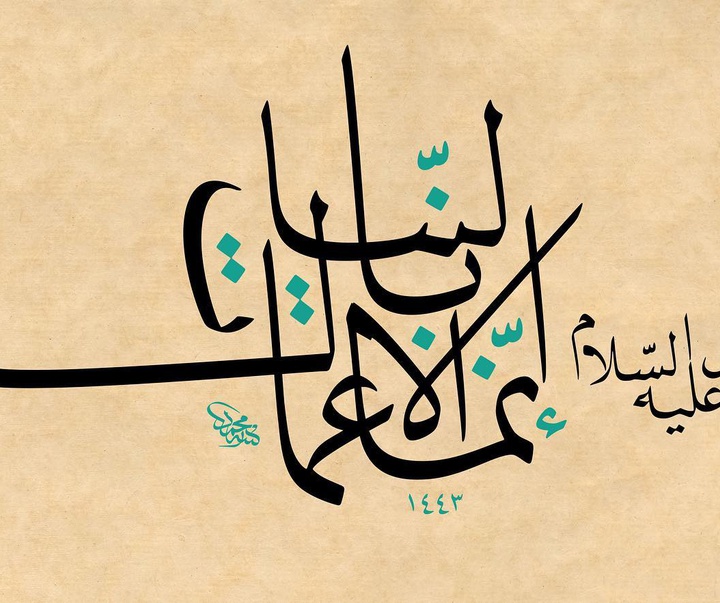 إنّما الاعمال بالنّيات
عليه السلام
١٤٤٣